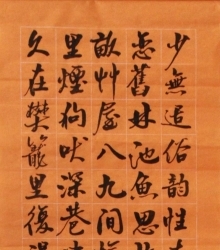 少無适俗韵性
恋舊林池魚思
畝艸屋八九間
里煙狗吠深巷
久在樊籠里復